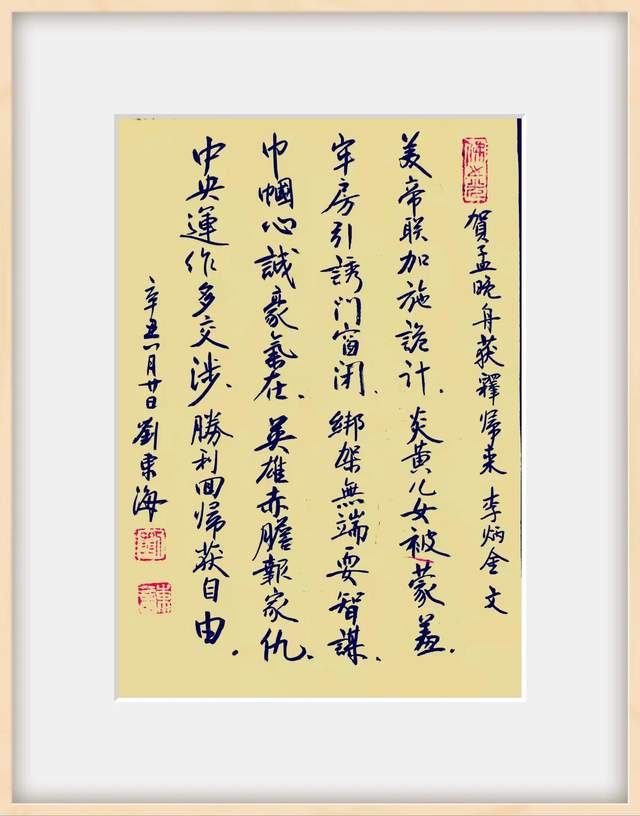 賀孟晚舟获釋帰来 李炳金 文
美帝联加施詭计.炎黄儿女被蒙羞.
牢房引誘门窗闭.綁架無端耍智謀.
巾幗心誠豪氣在.英雄赤膽報家仇.
中央運作多交涉.勝利回帰获自由.
辛丑八月廿日劉東海